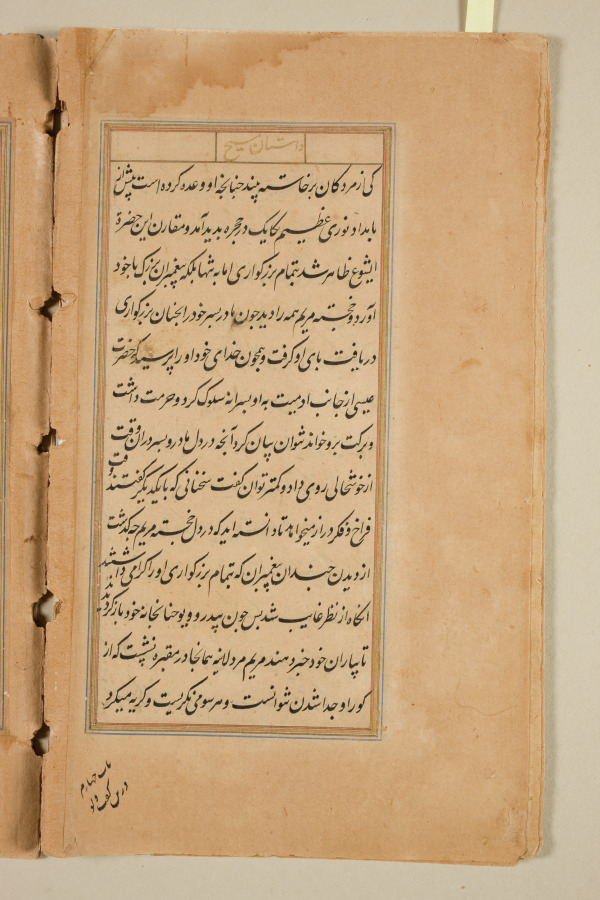 داستان مسیح
کی از مردکان برخاسته بیند چنانچه او وعده کرده است پیش از
بامداد نوری عظیم یکایک در حجره بدید آمد و مقارن این حضرة
ایشوع ظاهر شد بتمام بزرکواری اما نه تنها بلکه پیغمبران بزرک با خود
آورد و خجسته مریم همه را دید چون مادر پسر خود را بچنان بزرکواری
دریافت پای او کرفت و همچون خدای خود او را پرسید که حضرت
عیسی از جانب ادمیت به او پسرانه سلوک کرد و حرمت داشت
و برکت برو خواند نتوان بیان کرد آنچه در دل مادر و پسر در ان وقت
از خوشحالی روی داد و کمتر توان کفت سخنانی که با یکدیکر کفتند وقت
فراخ و فکر دراز میخواهد تا دانسته اید که در دل خجسته مریم چه کذشت
از دیدن چندان پیغمبران که بتمام بزرکواری او را کرامی داشتند
انکاه از نظر غایب شد پس چون پیدرو و یوحنا بخانه خود باز کردیدند
تا بیاران خود خبر دهند مریم مردلانیه همانجا در مقبره نشست که از
کور او جدا شدن نتوانست و هر سو می نکریست و کریه میکرد
باب چهارم
در